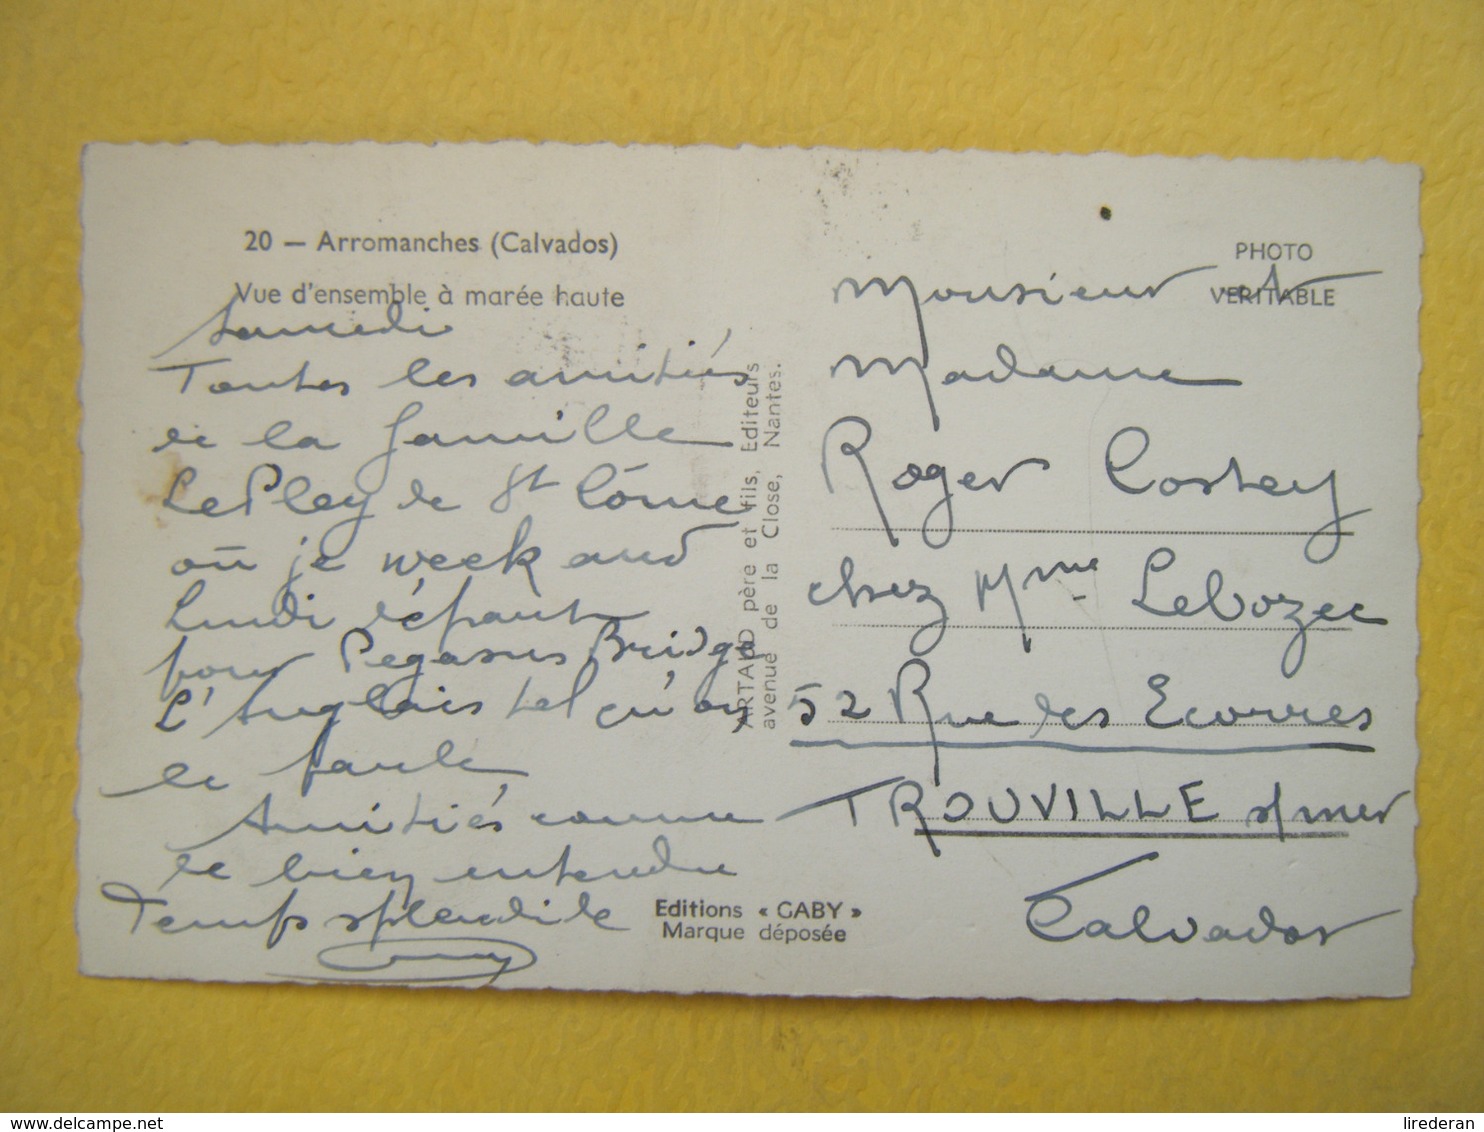 20 — Arromanches (Calvados)
Vue d'ensemble à marée haute
Samedi
Toutes les amitiés
de la famille
Le Pley de St Côme
où je week end
Lundi départ
pour Pegasus Bridge
L'Anglais tel qu'on
le parle
Amitiés comme
de bien entendu
Temps splendide
ARTAUD père et fils, Editeurs
avenue de la Close, Nantes.
Editions « GABY »
Marque déposée
PHOTO
VERITABLE
Monsieur et
Madame
Roger Costey
chez Mme Lebozec
52 Rue des Ecorres
TROUVILLE s/mer
Calvados
www.delcampe.net
lirederan